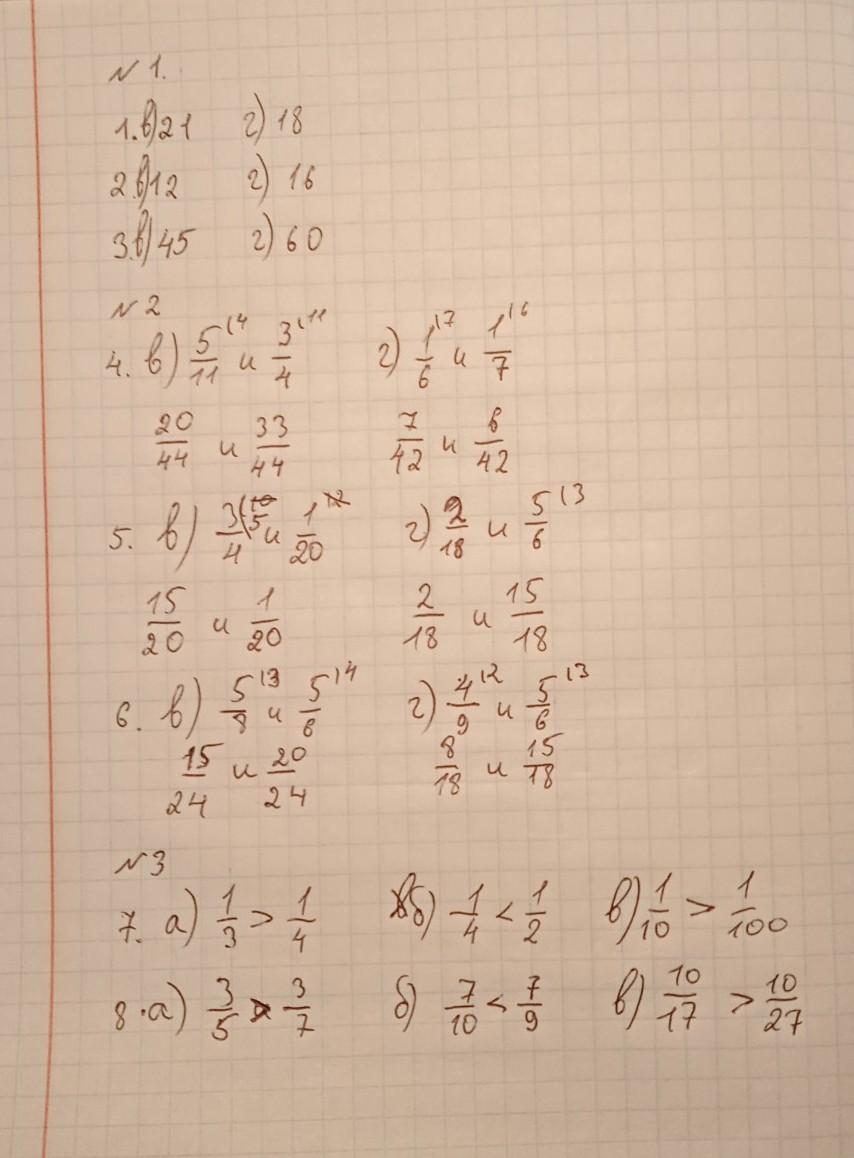 № 1.
1. в) 21 г) 18
2. в) 12 г) 16
3. в) 45 г) 60
№ 2
4. в) 5/11 (4 и 3/4 (11 г) 1/6 (7 и 1/7 (6
20/44 и 33/44 7/42 и 6/42
5. в) 3/4 (5 и 1/20 г) 2/18 и 5/6 (3
15/20 и 1/20 2/18 и 15/18
6. в) 5/8 (3 и 5/6 (4 г) 4/9 (2 и 5/6 (3
15/24 и 20/24 8/18 и 15/18
№ 3
7. а) 1/3 > 1/4 б) 1/4 < 1/2 в) 1/10 > 1/100
8. а) 3/5 > 3/7 б) 7/10 < 7/9 в) 10/17 > 10/27